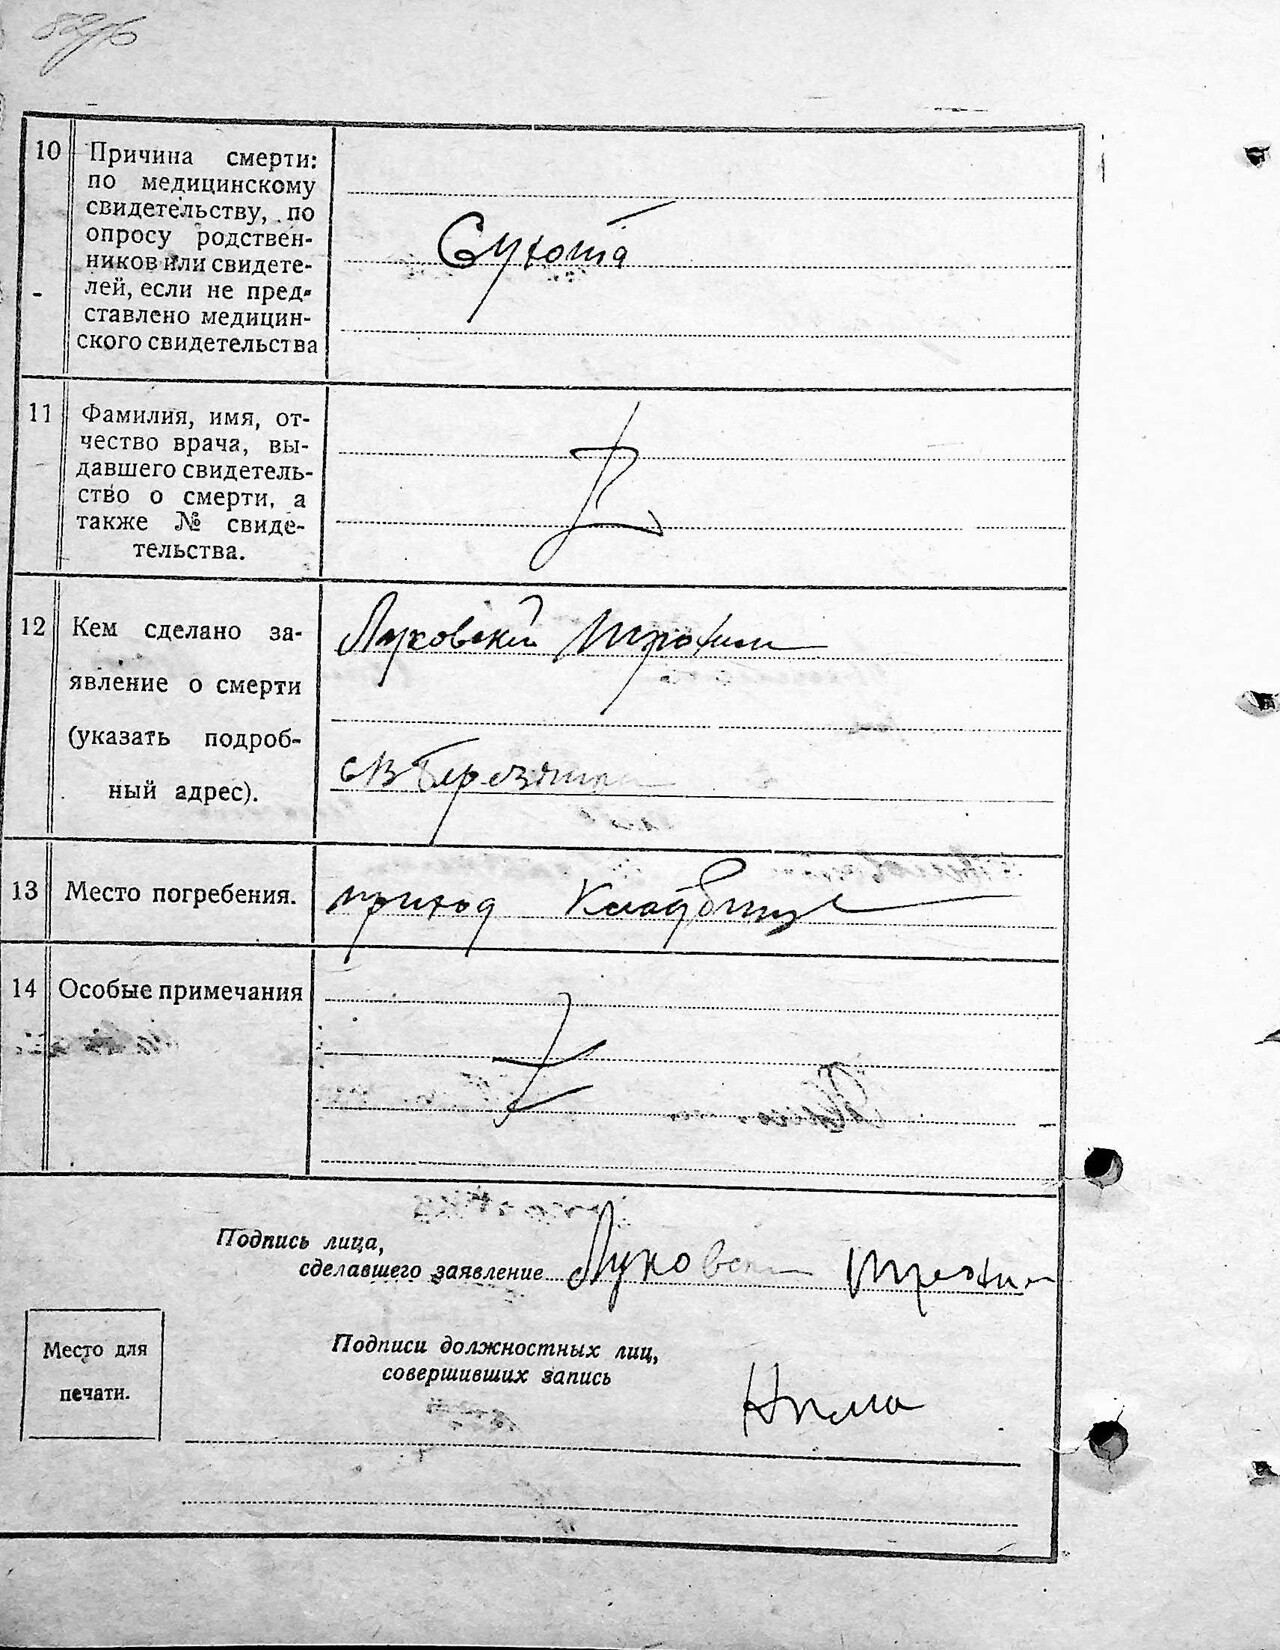 10 Причина смерти:
по медицинскому
свидетельству, по
опросу родствен-
ников или свидете-
лей, если не пред-
ставлено медицин-
ского свидетельства
Сухота
11 Фамилия, имя, от-
чество врача, вы-
давшего свидетель-
ство о смерти, а
также № свиде-
тельства.
12 Кем сделано за-
явление о смерти
(указать подроб-
ный адрес).
Луковский Трохим
13 Место погребения.
приход Кладбище
14 Особые примечания
Подпись лица,
сделавшего заявление Луковск Трохим
Место для
печати.
Подписи должностных лиц,
совершивших запись